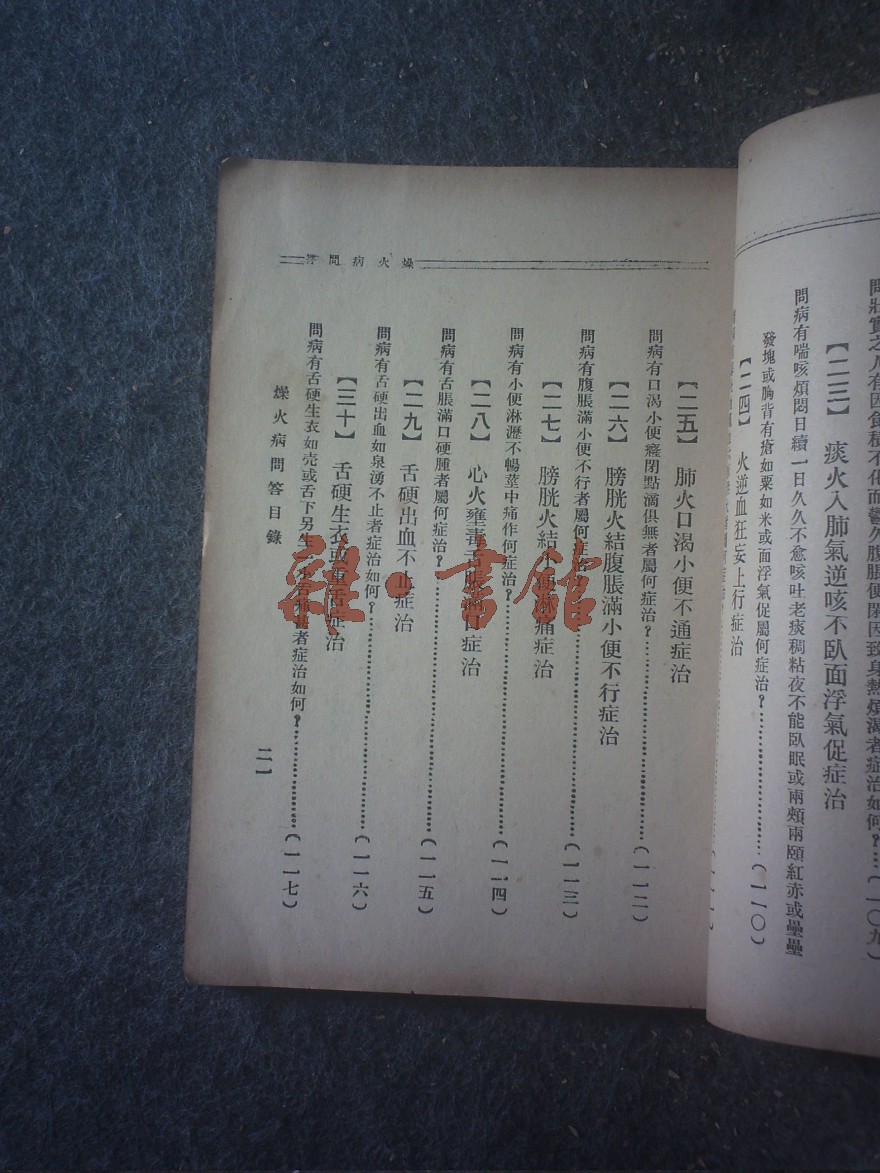 問壯實之人有因食積不化而鬱久腹脹便閉因致身熱煩渴者症治如何?…(一〇九)
【二三】 痰火入肺氣逆咳不臥面浮氣促症治
問病有喘咳煩悶日續一日久久不愈咳吐老痰稠粘夜不能臥眠或兩頰兩頤紅赤或壘壘
發塊或胸背有瘡如粟如米或面浮氣促屬何症治?……(一一〇)
【二四】 火逆血狂妄上行症治
燥火病問答
【二五】 肺火口渴小便不通症治
問病有口渴小便癃閉點滴俱無者屬何症治?……(一一二)
【二六】 膀胱火結腹脹滿小便不行症治
問病有腹脹滿小便不行者屬何症治?……(一一三)
【二七】 膀胱火結小便淋痛症治
問病有小便淋瀝不暢莖中痛作何症治?……(一一四)
【二八】 心火壅毒舌脹滿口症治
問病有舌脹滿口硬腫者屬何症治?……(一一五)
【二九】 舌硬出血不止症治
問病有舌硬出血如泉湧不止者症治如何?……(一一六)
【三十】 舌硬生衣或重舌症治
問病有舌硬生衣如壳或舌下另生一小舌痛甚者症治如何?……(一一七)
燥火病問答目錄
二一
雜·書館